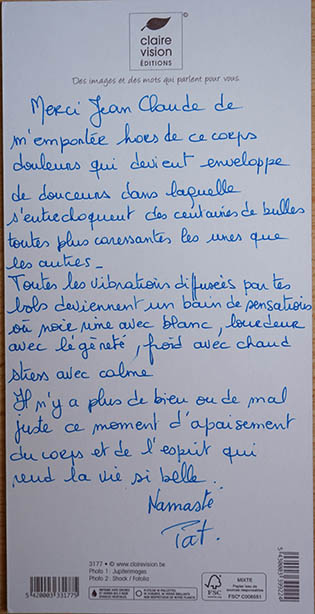 ©
claire
vision
ÉDITIONS
Des images et des mots qui parlent pour vous.
Merci Jean Claude de
m'emportée hors de ce corps
douleurs qui devient enveloppe
de douceurs dans laquelle
s'entrechoquent des centaines de bulles
toutes plus caressantes les unes que
les autres _
Toutes les vibrations difusées par tes
bols deviennent un bain de sensations
où noir rime avec blanc, lourdeur
avec légèreté, froid avec chaud
stress avec calme
Il n'y a plus de bien ou de mal
juste ce moment d'apaisement
du corps et de l'esprit qui
rend la vie si belle..
Namasté
Pat.
3177 • © www.clairevision.be
Photo 1 : Jupiterimages
Photo 2 : Shock / Fotolia
5 420003 331775
FSC
MIXTE